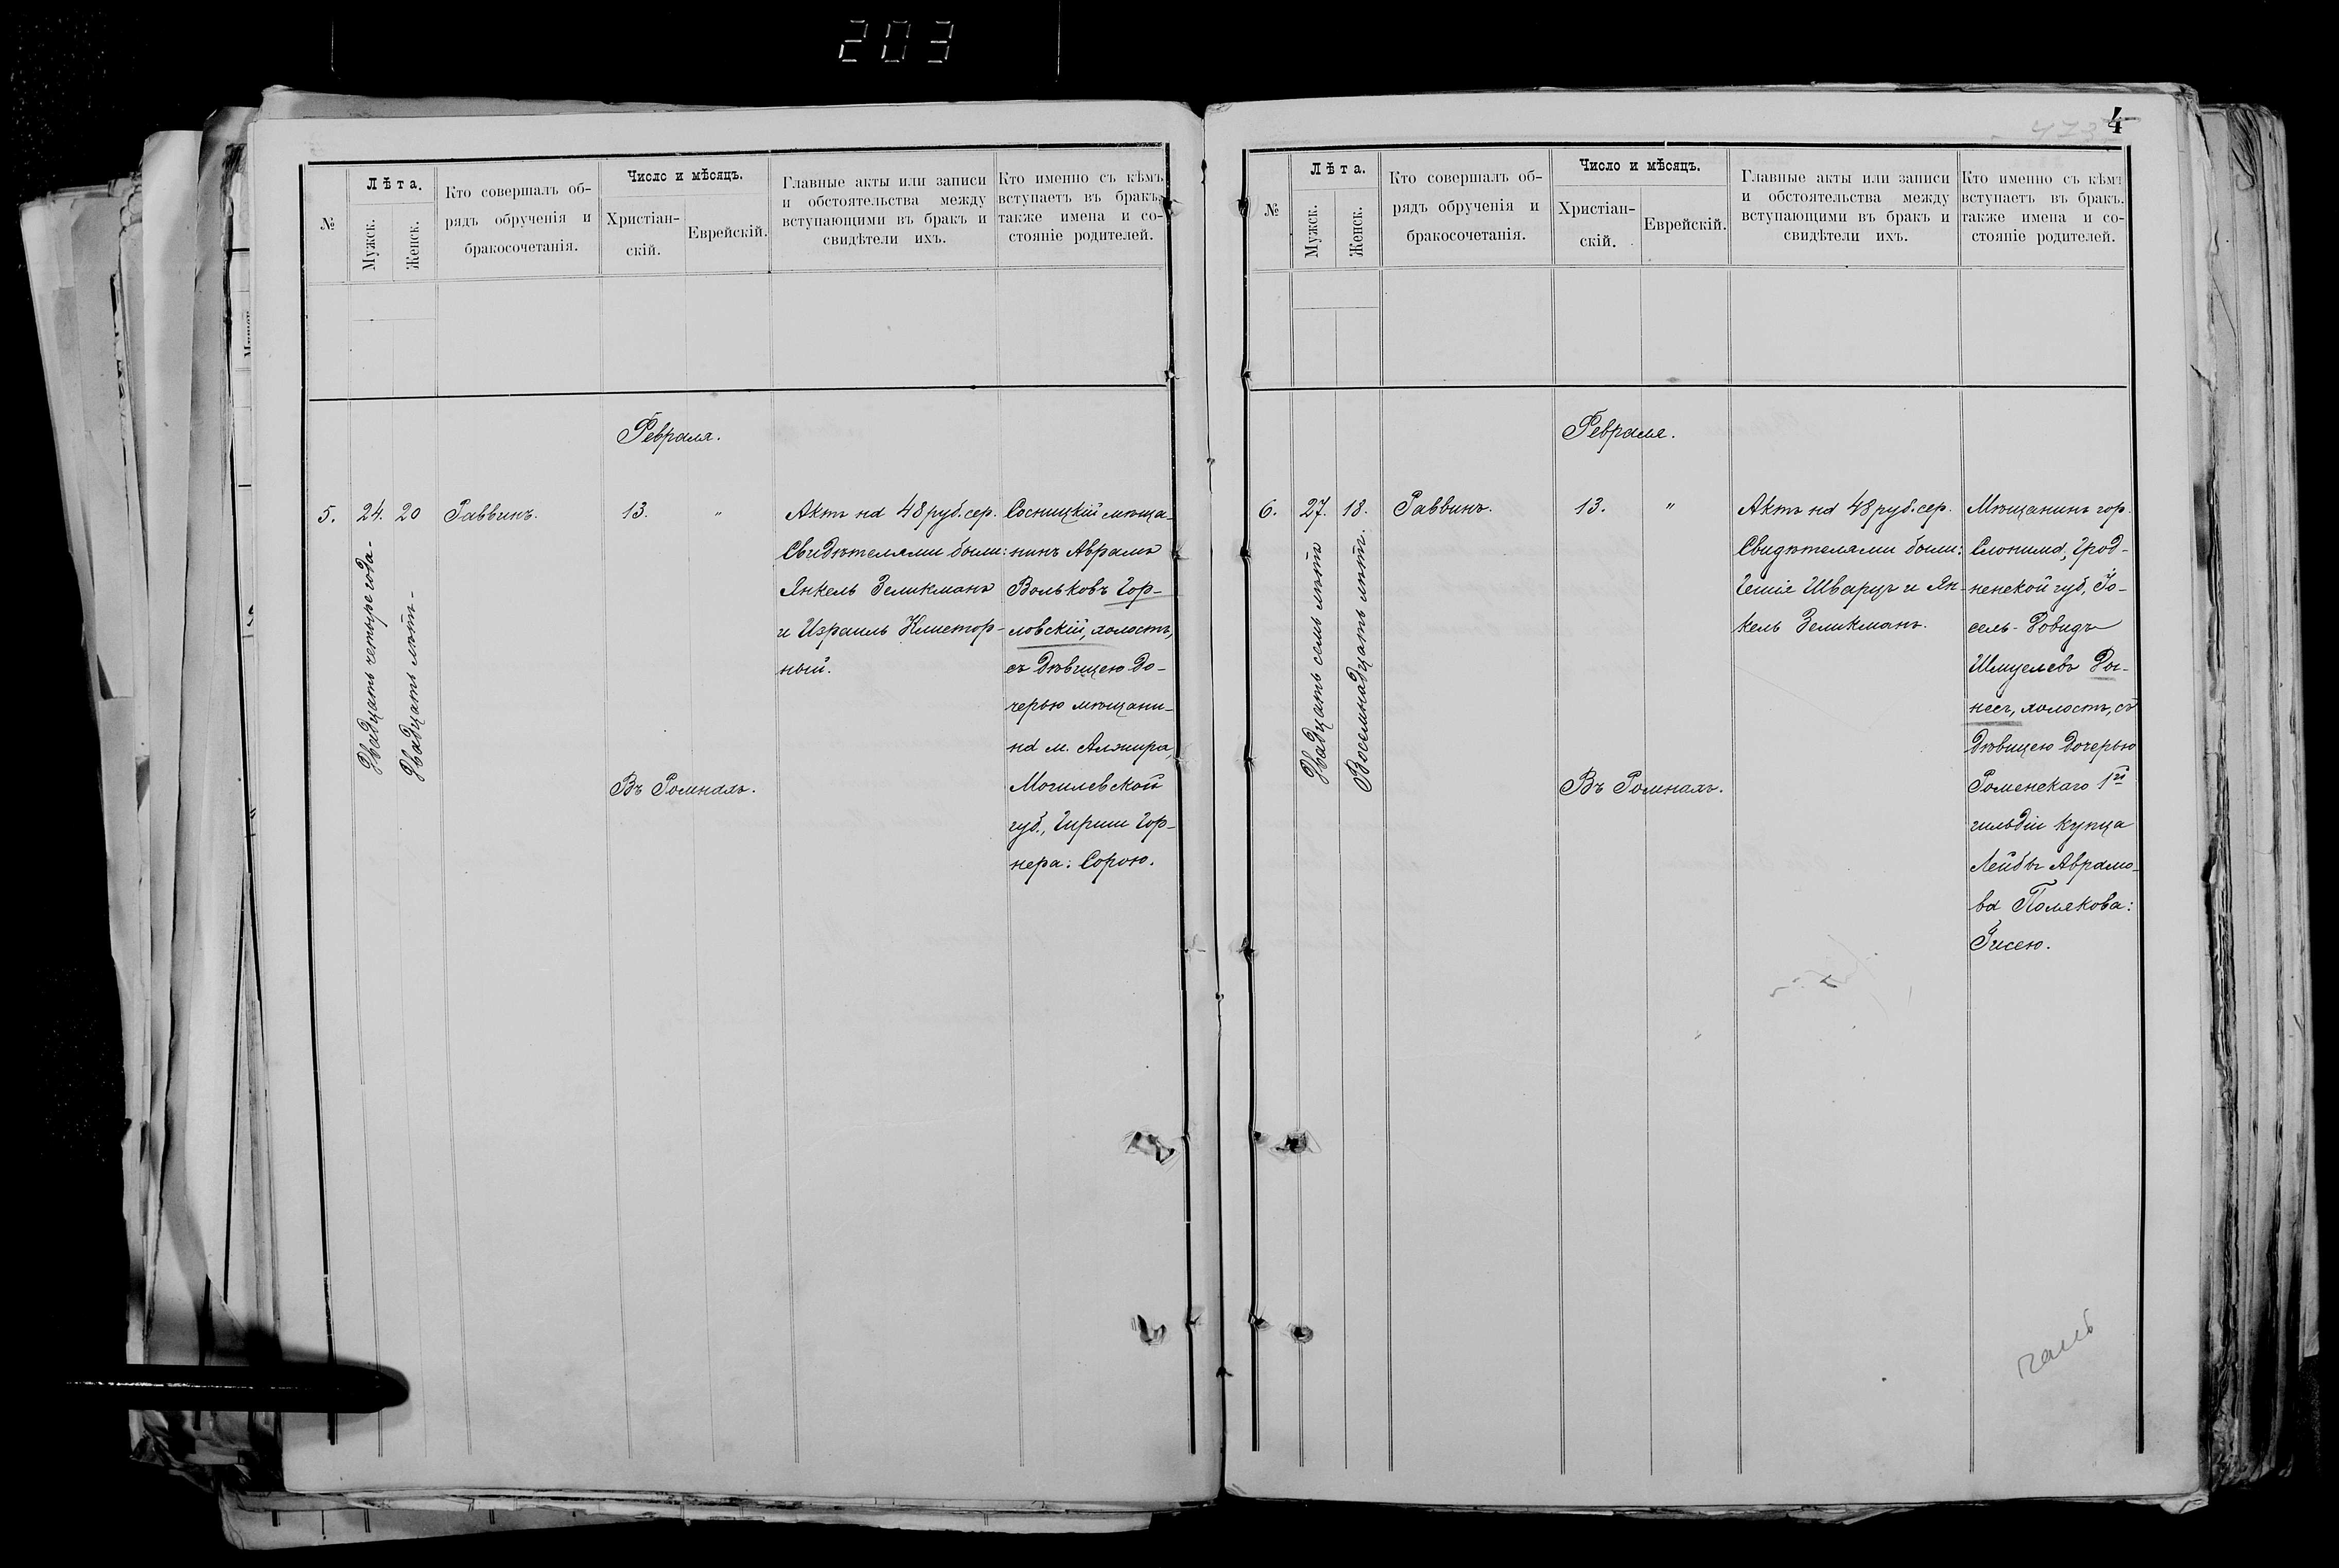 203
№
Лѣта.
Мужск.
Женск.
Кто совершалъ об-
рядъ обрученія и
бракосочетанія.
Число и мѣсяцъ.
Христіан-
скій.
Еврейскій.
Главные акты или записи
и обстоятельства между
вступающими въ бракъ и
свидѣтели ихъ.
Кто именно съ кѣмъ
вступаетъ въ бракъ,
также имена и со-
стояніе родителей.
Февраля.
5.
24.
20
Двадцать четыре года.
Двадцать лѣтъ.
Раввинъ.
13.
"
Въ Ромнахъ.
Актъ на 48 руб. сер.
Свидѣтелями были:
Янкель Зеликманъ
и Израиль Клистор-
ный.
Сосницкій мѣща-
нинъ Аврамъ
Вольковъ Гор-
ловскій, холостъ,
съ дѣвицею до-
черью мѣщани-
на м.
Могилевской
губ., Гирши Гор-
нера: Сорою.
4
№
Лѣта.
Мужск.
Женск.
Кто совершалъ об-
рядъ обрученія и
бракосочетанія.
Число и мѣсяцъ.
Христіан-
скій.
Еврейскій.
Главные акты или записи
и обстоятельства между
вступающими въ бракъ и
свидѣтели ихъ.
Кто именно съ кѣмъ
вступаетъ въ бракъ,
также имена и со-
стояніе родителей.
Февраля.
6.
27.
18.
Двадцать семь лѣтъ
Восемнадцать лѣтъ.
Раввинъ.
13.
"
Въ Ромнахъ.
Актъ на 48 руб. сер.
Свидѣтелями были:
Шварцъ и Ян-
кель Зеликманъ.
Мѣщанинъ гор.
Слонима, Грод-
ненской губ, Іо-
сель-Довидъ
Шмуелевъ
холостъ, съ
дѣвицею дочерью
Роменскаго 1й
гильдіи купца
Лейбы Аврамо-
ва Полякова: